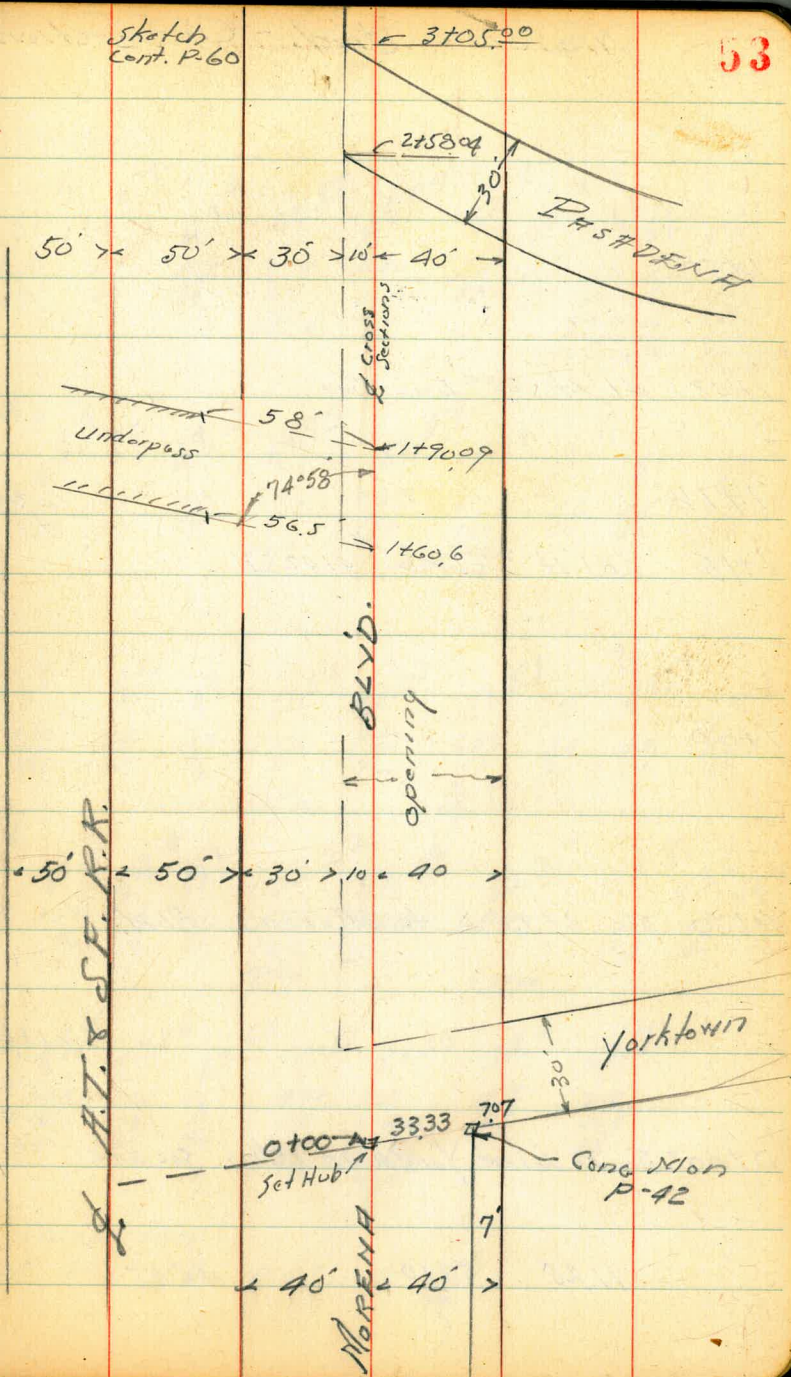 Sketch
Cont. P-60
3+05.00
53
2+58.04
30'
PASADENA
50' 50' 30' 10' 40'
℄ Cross
Sections
58'
1+90.09
Underpass
74°58'
56.5
1+60.6
BLVD.
opening
50' 50' 30' 10 40
℄ A.T. & S.F. R.R.
Yorktown
30'
0+00
33.33
7.07
Set Hub
Conc Mon
P-42
7'
40' 40'
MORENA